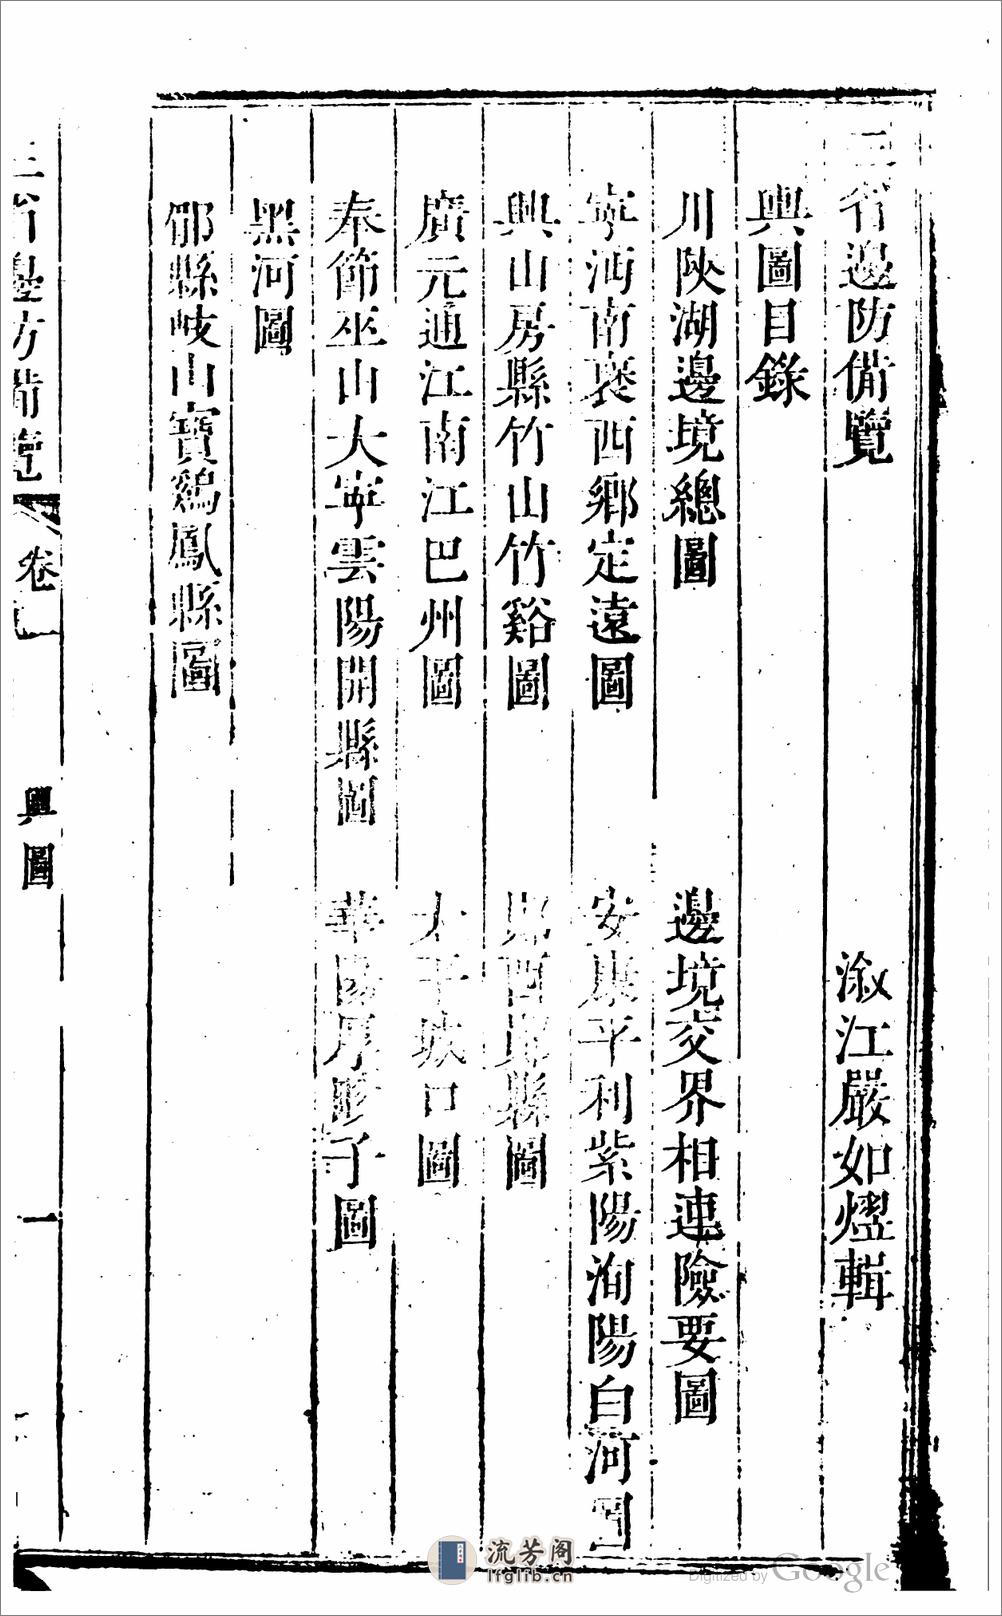 三省邊防備覽 溆江嚴如熤輯
輿圖目錄
川陝湖邊境總圖 邊境交界相連險要圖
寧沔南褒西鄉定遠圖 安康平利紫陽洵陽白河圖
興山房縣竹山竹谿圖 鄖西鄖縣圖
廣元通江南江巴州圖 太平城口圖
奉節巫山大寧雲陽開縣圖 華陽厚畛子圖
黑河圖
郿縣岐山寶鷄鳳縣圖
三省邊防備覽 卷一 輿圖 一
流芳阁
lfglib.cn
Digitized by Google